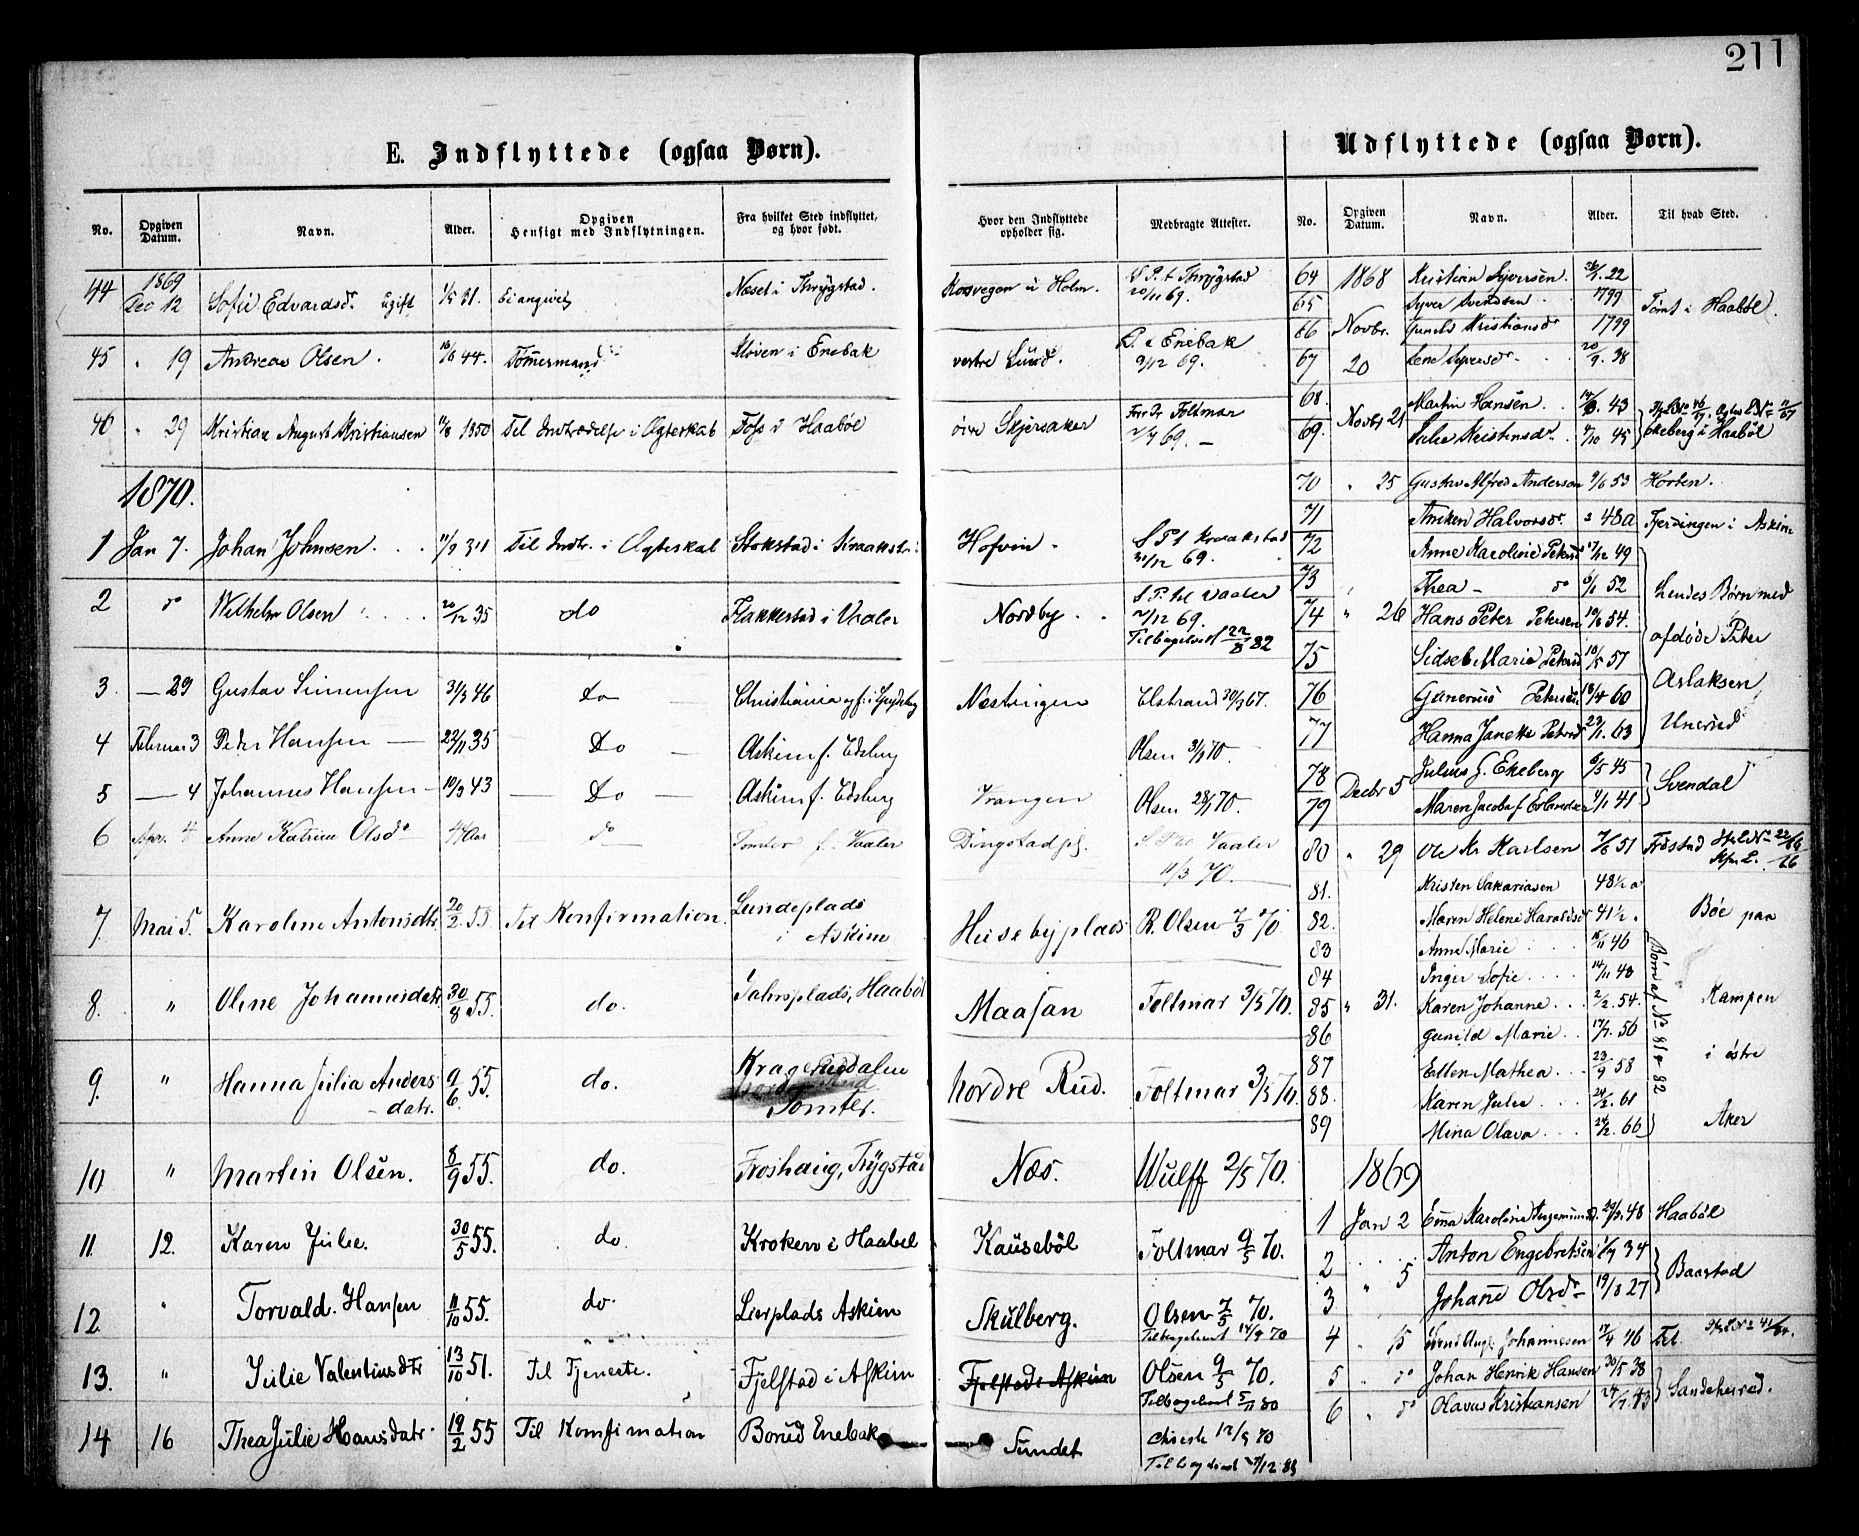 211
E. Indflyttede (ogsaa Børn).
No. Opgiven Datum. Navn. Alder. Opgiven Hensigt med Indflytningen. Fra hvilket Sted indflyttet, og hvor født. Hvor den Indflyttede opholder sig. Medbragte Attester.
44 1869 Dec 12 Sofie Edvardsdr ugift 1/5 31. Ei angivet Næset i Thrygstad. i Holm. S. P. t. Thrygstad 20/11 69.
45 " 19 Andreas Olsen. 16/6 44. Tømmermand Sloven i Enebak vestre Lund. P. i Enebak 9/12 69.
46 " 29 Kristian August Kristiansen 11/8 1850 Til Indtrædelse i Ægteskab Foss i Haabøe øvre Skjersaker Foltmar 69. —
1870.
1 Jan 7. Johan Johnsen. 11/7 Til Indtr. i Ægteskab Stokstad i Kraakst: Hofvin. S P t Kraakstad 31/12 69.
2 do Wilhelm Olsen 20/12 35 do Flakkestad i Vaaler Nordby. S. P. til Vaaler 2/12 69. Tilbagelevert 22/8 82
3. — 29 Gustav Simensen 31/3 46 Do Christiania og f. i Spydeberg Næstringen Ulstrand 30/3 67.
4 Februar 3 Peder Hansen — 22/11 35 Do — Askim f. Edsberg Olsen 31/1 70.
5 — 4 Johannes Hansen — 10/3 43 — Do — Askim f. Edsberg Vrangen Olsen 28/1 70.
6 Apr. 4 Anne Katrine Olsdr 44 Aar — do — Tomter f. Vaaler Dingstadpl. S. P. Vaaler 11/3 70.
7. Mai 5. Karoline Antonsdtr 20/2 55 Til Konfirmation. Lundeplads i Askim Husebyplads R. Olsen 7/3 70
8. " Oline Johannesdatr 30/8 55. do. Haabøl Maasan Foltmar 3/5 70.
9. " Hanna Julia Andersdatr. 9/6 55. do. Kragerudalen Tomter. Nordre Rud. Foltmar 3/5 70
10 " Martin Olsen. 8/9 55. do. Froshaug, Trygstad Næs. Wulff 2/5 70.
11. 12. Karen Julie. 30/5 55. do. Kroken i Haabel Kausebøl Foltmar 9/5 70.
12. " Torvald Hansen 11/10 55. do. Lierplads Askim Skulberg. Olsen 7/5 70. Tilbagelevert 14/9 70
13. " Julie Valentinsdtr 13/10 51. Til Tjeneste. Fjelstad i Askim Fjelstad i Askim Olsen 9/5 70. Tilbagelevert 5/11 80
14 16 Thea Julie Hansdatr. 19/2 55 Til Konfirmation Borud Enebak Sundet Christie 12/9 70
Udflyttede (ogsaa Børn).
No. Opgiven Datum. Navn. Alder. Til hvad Sted.
64 1868 Kristian Syversen. 22
65 Syver Svendsen 1799 Tømt i Haabøl.
66 Novbr. Gunild Kristiansdr 1799
67 20 Lene Syversdr. 20/9. 38
68. Martin Hansen. 43
69. Novbr 21 Kristensdr. 45 Ekeberg i Haabøl
70 " 25 Gustav Alfred Anderson 9/6 53 Horten.
71 Anniken Halvorsdr. 48 a Fjerdingen i Askim
72 Anne Karoline Petersd 17/12 49
73 Thea — do 6/1 52 hendes Børn med
74 " 26 Hans Peter Petersen 19/6 54. afdøde Peter
75 Sidsel Marie Petersd 10/5 57
76 Gunerius Petersen 18/4 60 Aslaksen
77 Hanna Janette Petersd 23/1. 63 Unerud
78 Julius G. Ekeberg 6/5 45
79 Decbr 5 Maren Jacobs f. Erlandsen 4/1 48 Svendal
80 " 29 Ole Kr Karlsen 7/6 51 Frøstad
81. Kristen Sakariasen 48 1/2 a
82. Maren Helene Haraldsdr 41 1/2 " Bøe paa
83 Anne Marie 46
84 Inger Sofie. 14/11 48
85 " 31. Karen Johanne. 2/2. 54. Kampen
86 Gunild Marie. 17/7. 56
87 Ellen Mathea. 23/9 58 i østre
88. Karen Julie. 24/2. 61
89 Mina Olava. 24/2. 66 Aker
Børn af No 81 & 82
1869
1 Jan 2 Emma Karoline 48 Haabøl
2 " 5 Anton Engebretsen 34 Baastad
3 " Johanne Olsdr 19/8 27
4 " 15 Johannesen 17/4 46 Fet.
5 " do Johan Henrik Hansen 30/5 38 Sandeherred.
6 " do Olavus Kristiansen 24/7. 43